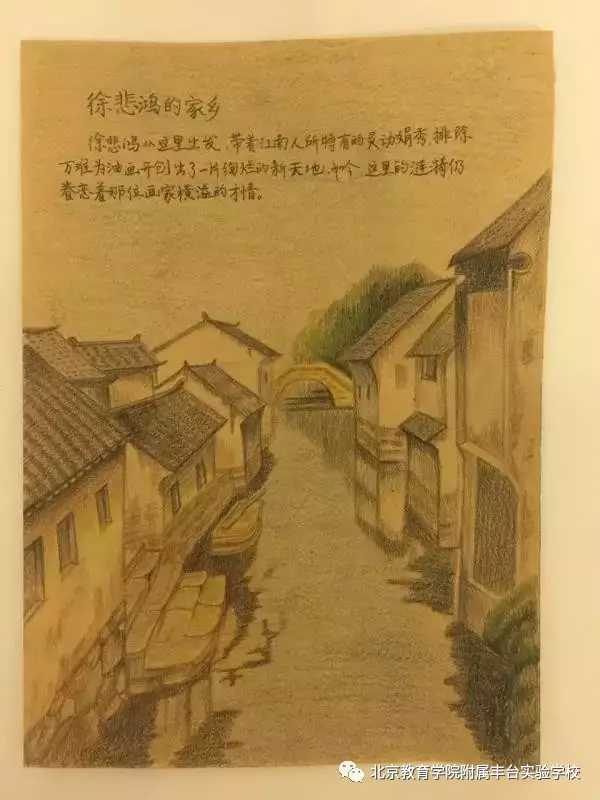 徐悲鸿的家乡
徐悲鸿从这里出发、带着江南人所特有的灵动娟秀,排除
万难为油画开创出了一片绚烂的新天地,如今,这里的涟漪仍
眷恋着那位画家横溢的才情。
北京教育学院附属丰台实验学校